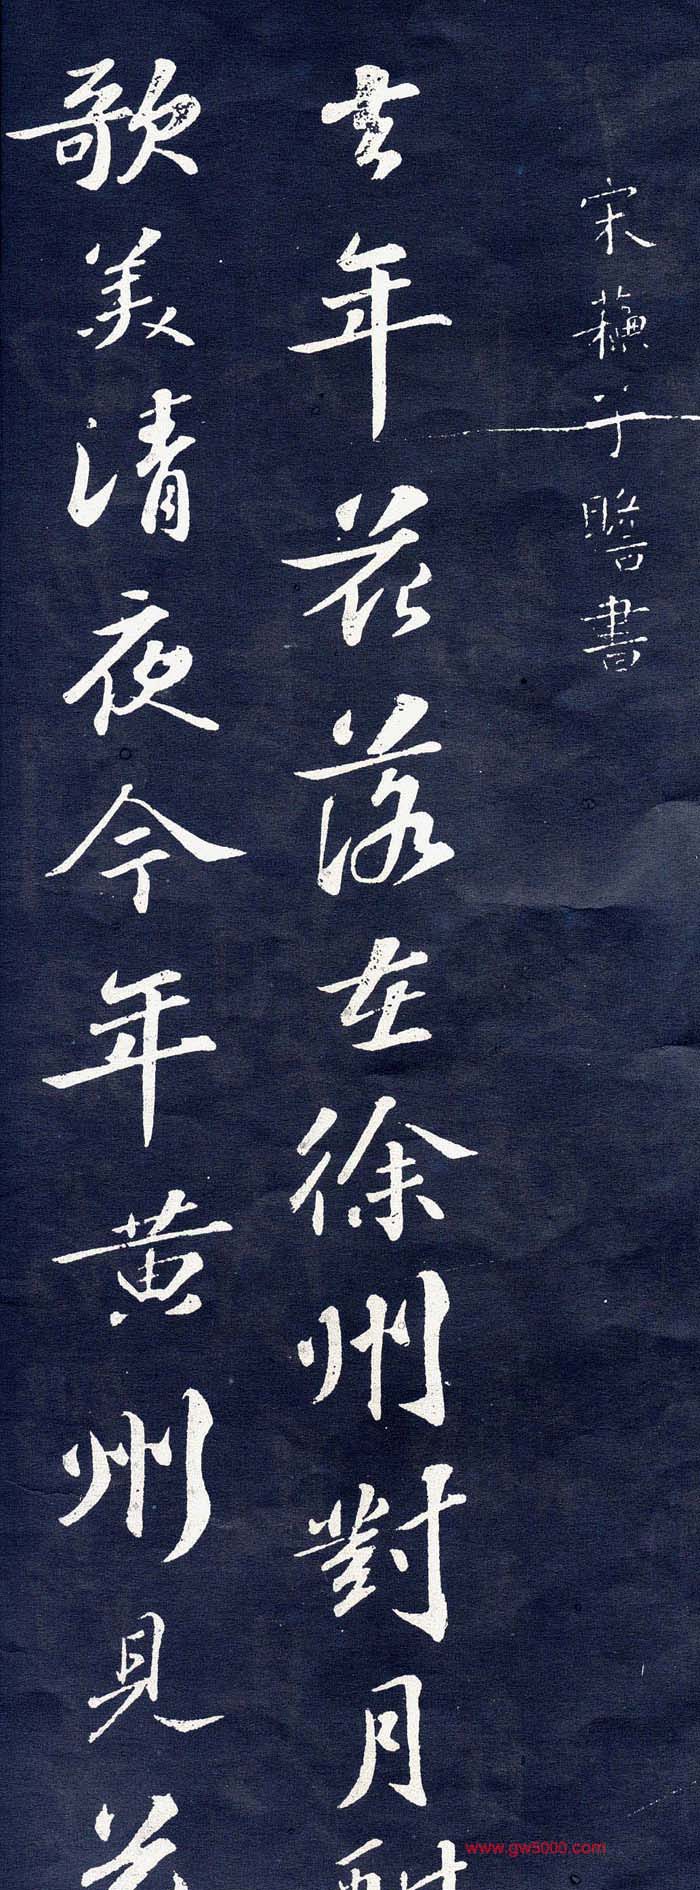 宋蘇子瞻書
去年花落在徐州對月酣
歌美清夜今年黄州見花
www.gw5000.com